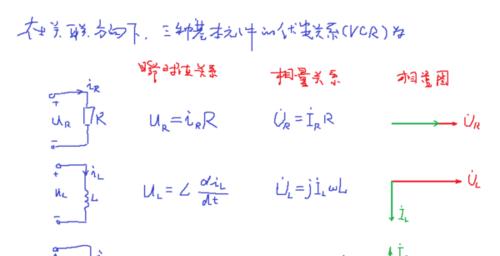 在关联方向下，三种基本元件的伏安关系(VCR)为
瞬时值关系 相量关系 相量图
+ i_R
u_R R u_R = i_R R U̇_R = İ_R R U̇_R
-
+ i_L
u_L L u_L = L di_L/dt U̇_L = jİ_L ωL U̇_L
- İ_L
+ i İ